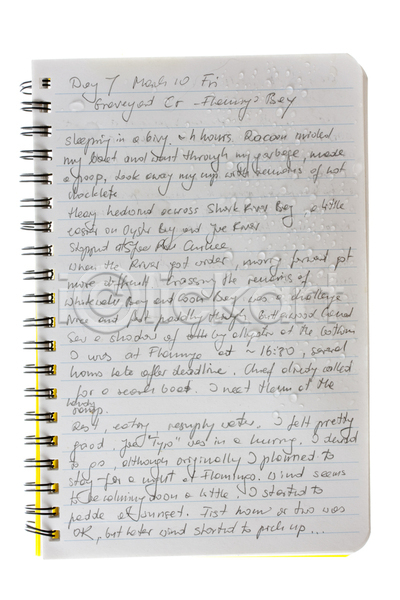 Day 7 March 10 Fri
Graveyard Cr - Flamingo Bay
sleeping in a bivy, hours. Racoon invided
my boat and went through my garbage, made
a poop, took away my cup with remains of hot
choclate
Heavy hedwind across Shark River Bay, a little
easier on Oyster Bay and Joe River
Stopped at Joe River
When the River got wider moving forward got
more difficult. Crossing the remains of
Whitewater Bay and Coon Bay was a challenge
Nice and fast paddling Buttonwood Canal
Saw a shadow of alligator at the bottom
I was at Flamingo at ~ 16:30, several
hours late after deadline. Chief already called
for a rescue boat. I meet them at the
ramp.
Rest, eating, resupply water. I felt pretty
good, was in a hurry. I decided
to go, although originally I planned to
stay for a night at Flamingo. Wind seems
to be calming down a little. I started to
paddle at sunset. First hour or two was
OK, but later wind started to pick up...